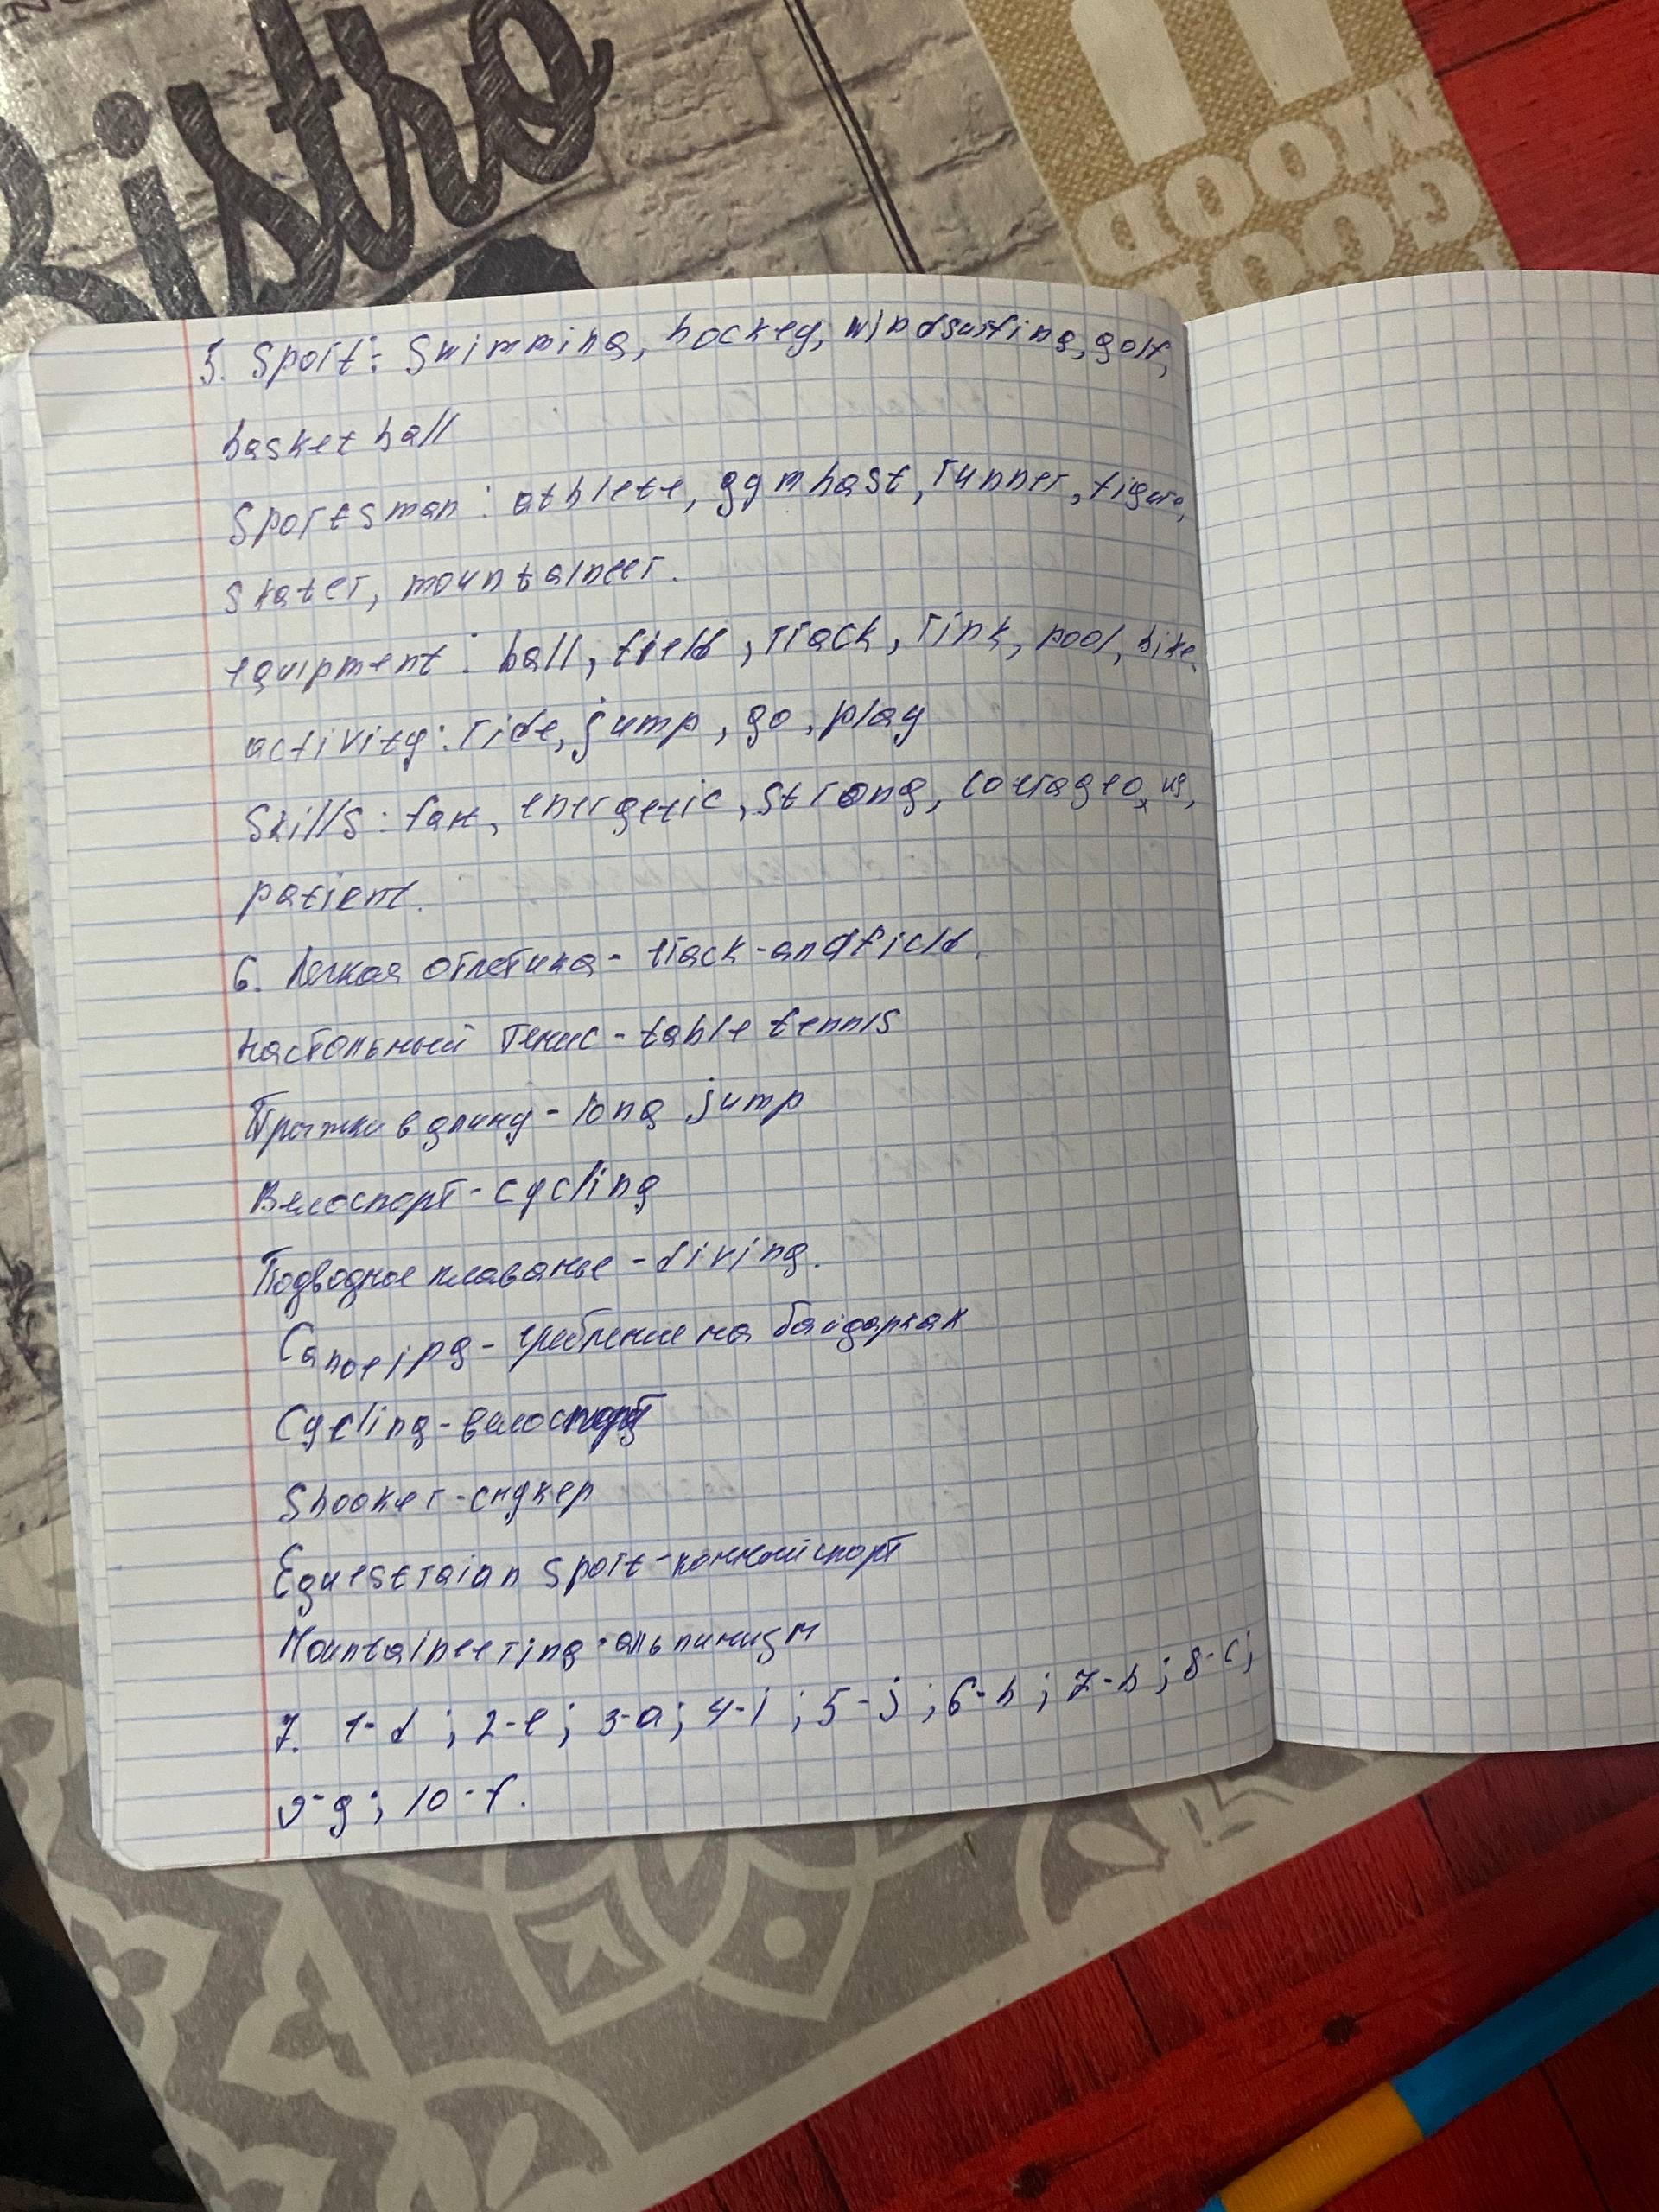 Bistro
GOOD
MOOD
5. Sport: Swimming, hockey, windsurfing, golf,
basket ball
Sportsman: athlete, gymnast, runner, figure,
skater, mountaineer.
equipment: ball, field, track, rink, pool, bike.
activity: ride, jump, go, play
Skills: fast, energetic, strong, courageo, us,
patient.
6. Легкая отлетика - track-and field.
Настольный тенис - table tennis
Прыжки в длину - long jump
Велоспорт - cycling
Подводное плаванье - diving.
Canoeing - гребление на байдарках
Cycling - велоспорт
Snooker - снукер
Equestraian sport - конный спорт
Mountaineering - альпинизм
7. 1-d; 2-e; 3-a; 4-i; 5-j; 6-h; 7-b; 8-c;
9-g; 10-f.